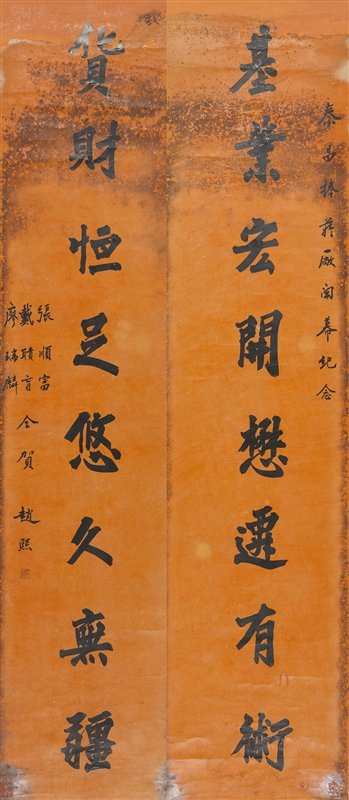 泰昌棧蔴廠開幕紀念
基業宏開懋遷有術
貨財恒足悠久無疆
張順富
戴積育
廖瑞麟
仝賀
趙熙